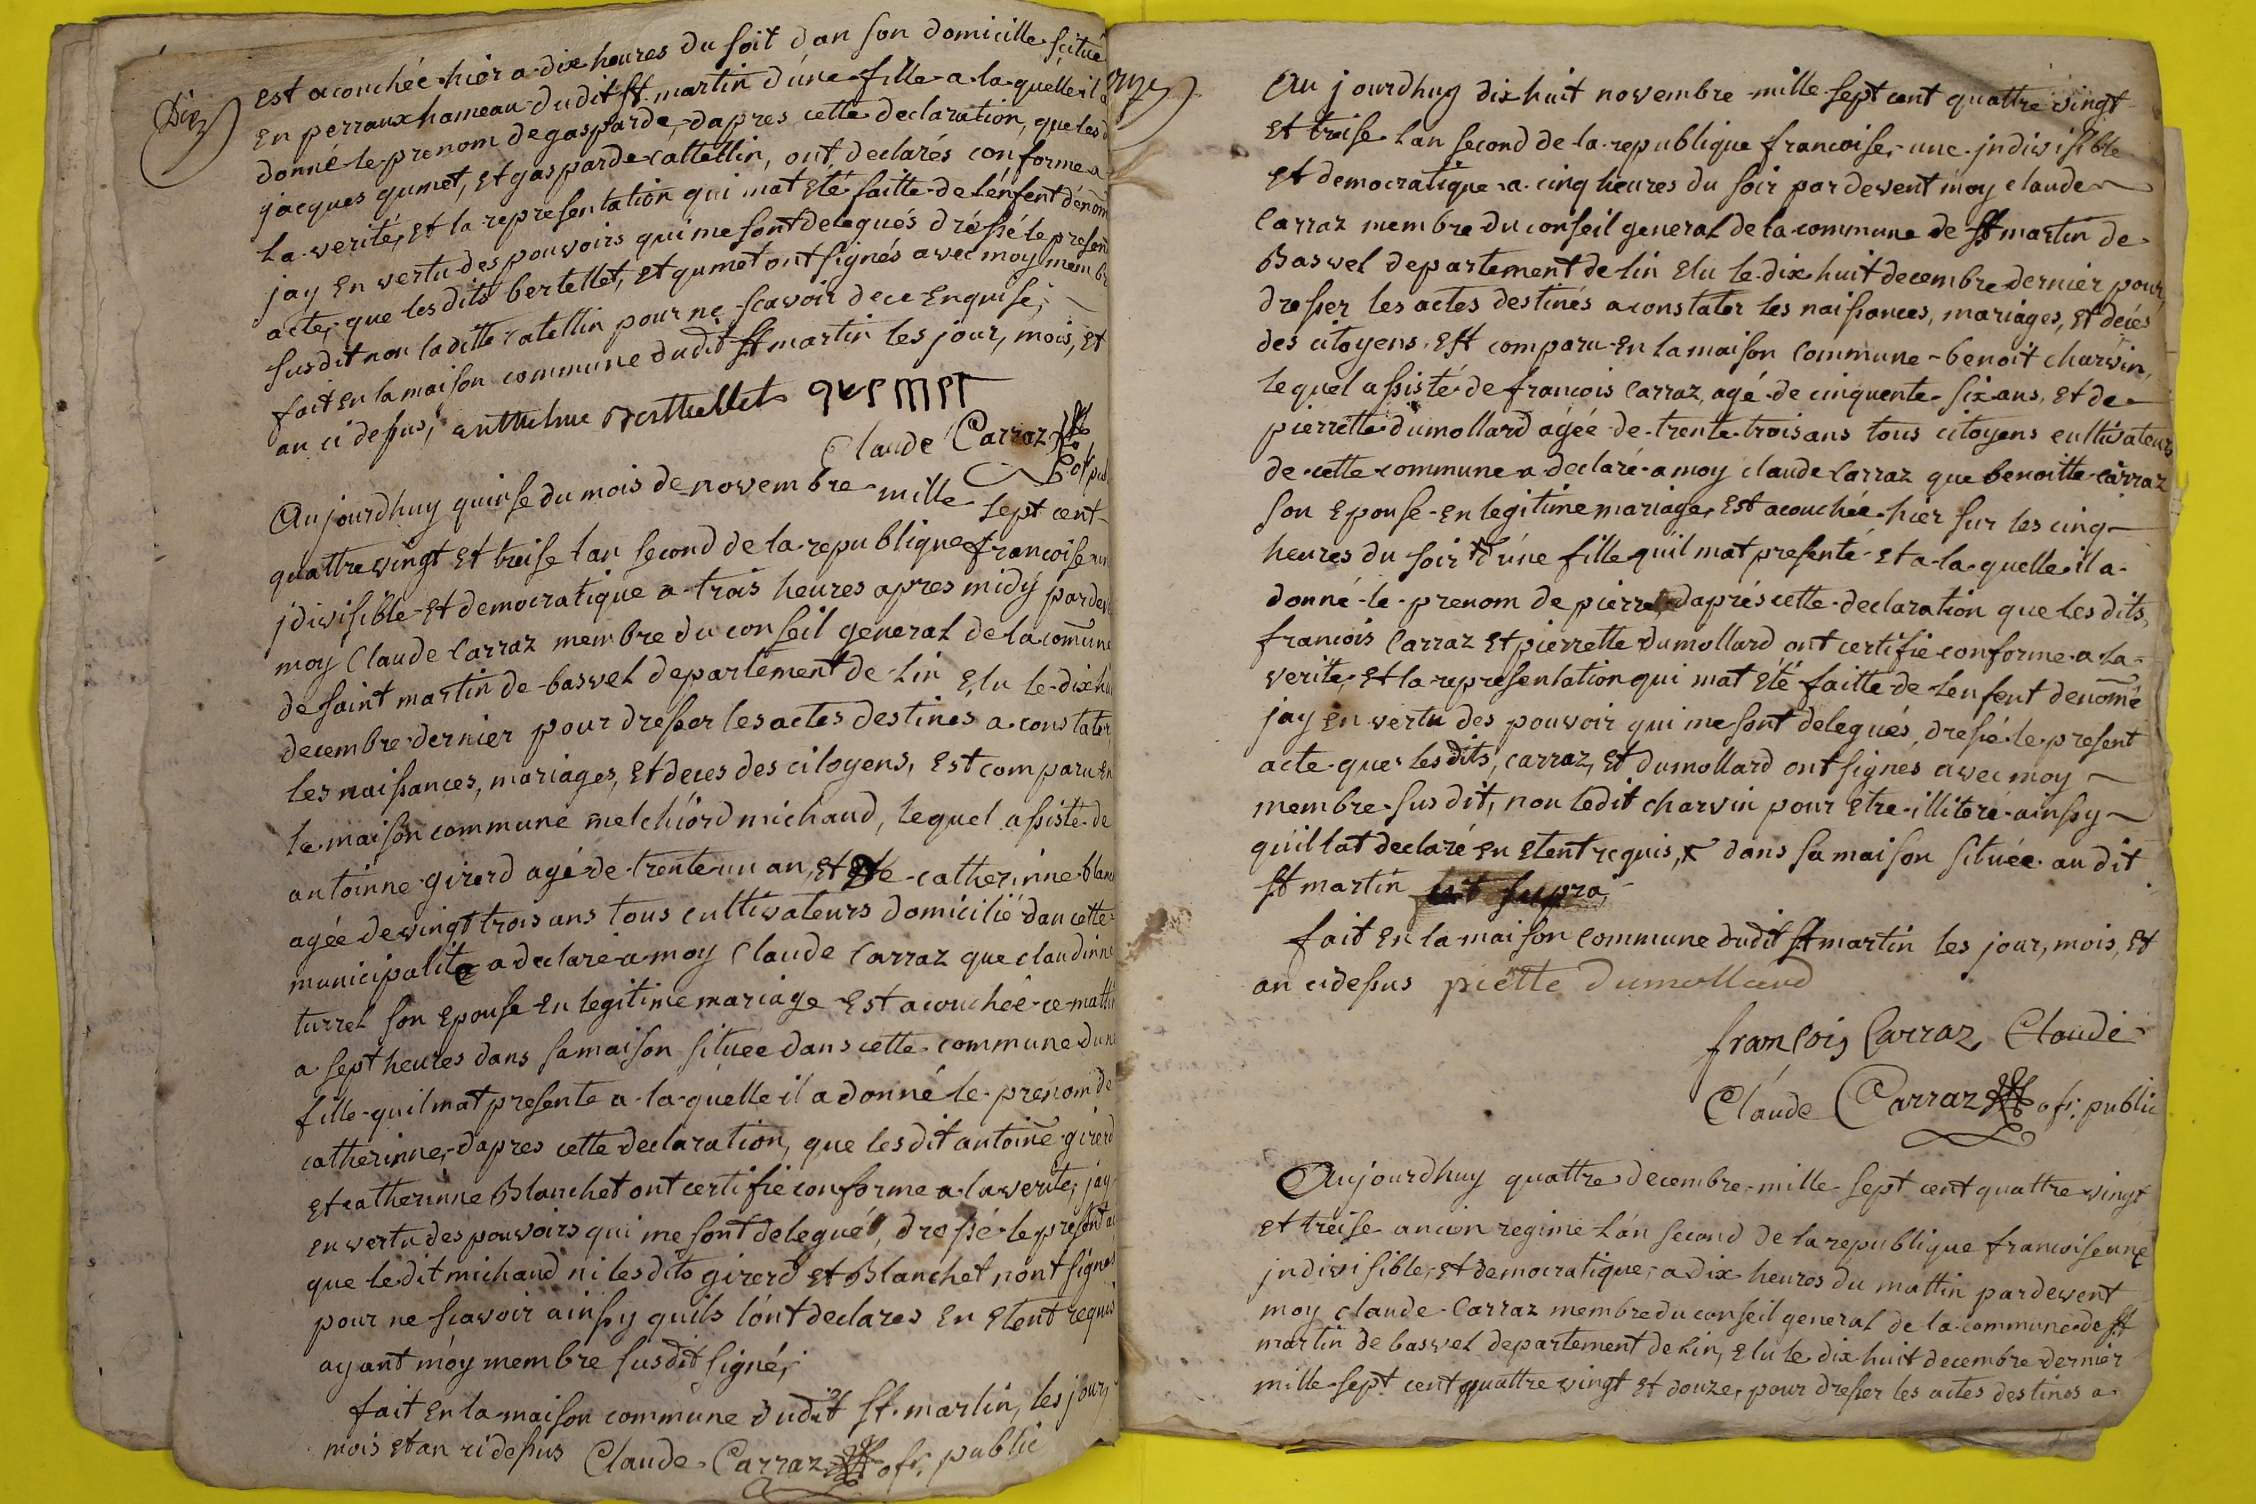 Dix
est acouchée hier a dix heures du soit dan son domicille scitué
en perraux hameau dudit st martin d'une fille a la quelle il a
donné le prenom de gasparde, dapres cette declaration, que les d
jacques gumet, et gasparde cattellin, ont declarés conforme a
la verité, et la representation qui mat eté faitte de lenfent dénom
jay en vertu des pouvoirs qui me sont delegués dréssé le presen
acte, que lesdits bertellet, et gumet ont signés avec moy memb
susdit non laditte catellin pour ne scavoir de ce enquise,
fait en la maison commune dudit st martin les jour, mois, et
an ci dessus, anthelme Berthellet gvemet
Claude Carraz of. pub
Aujourdhuy quinse du mois de novembre mille sept cent
quattre vingt et treise lan second de la republique francoise un
jdivisible et democratique a trois heures apres midy pardev
moy Claude Carraz membre du conseil general de la comune
de saint martin de basvel departement de lin elu le dix hui
decembre dernier pour dresser les actes destines a constater
les naissances, mariages, et deces des citoyens, est comparu en
la maison commune melchiord michaud, lequel assisté de
antoinne girerd agé de trente un an, et de catherinne blanc
agée de vingt trois ans tous cultivateurs domicilié dan cette
municipalité a declaré a moy Claude Carraz que claudinne
turrel son epouse en legitime mariage est acouchée ce mattin
a sept heures dans sa maison situee dans cette commune dune
fille quil mat presente a la quelle il a donné le prenom de
catherinne, dapres cette declaration, que les dit antoine girerd
et catherinne Blanchet ont certifie conforme a la verite, jay
en vertu des pouvoirs qui me sont delegués, dressé le present ac
que le dit michaud ni les dits girerd et Blanchet nont signes
pour ne scavoir ainssy quils lont declares en etent requis
ayant moy membre susdit signé,
fait en la maison commune dudit st. martin, les jour,
mois et an ci dessus Claude Carraz of. public
onze
Au jourdhuy dix huit novembre mille sept cent quattre vingt
et treise lan second de la republique francoise, une jndivisible
et democratique a cinq heures du soir par devent moy claude
Carraz membre du conseil general de la commune de st martin de
Basvel departement de lin elu le dix huit decembre dernier pour
dresser les actes destinés a constater les naissances, mariages, et décés
des citoyens, est comparu en la maison commune benoit charvin,
lequel assisté de francois Carraz, agé de cinquente six ans, et de
pierrette dumollard agée de trente trois ans tous citoyens cultivateurs
de cette commune a declaré a moy claude Carraz que benoitte carraz
son epouse en legitime mariage, est acouchée hier sur les cinq
heures du soir d'une fille quil mat presenté et a la quelle il a
donné le prenom de pierre daprés cette declaration que les dits,
francois Carraz et pierrette dumollard ont certifie conforme a la
verite, et la representation qui mat eté faitte de lenfent denomé
jay en vertu des pouvoir qui me sont delegués, dressé le present
acte que les dits, carraz, et dumollard ont signes avec moy
membre susdit, non ledit charvin pour etre illiteré ainssy
qu'il lat declaré en etent requis, x dans sa maison située au dit
st martin ut supra,
fait en la maison commune dudit st martin les jour, mois, et
an ci dessus piette Dumollard
francois Carraz, Claude
Claude Carraz of. public
Aujourdhuy quattre decembre mille sept cent quattre vingt
et treise ancien regime lan second de la république francoise une
jndivisible, et democratique, a dix heures du mattin pardevent
moy claude Carraz membre du conseil general de la commune de st
martin de basvel departement de lin, elu le dix huit decembre dernier
mille sept cent quattre vingt et douze, pour dresser les actes destines a